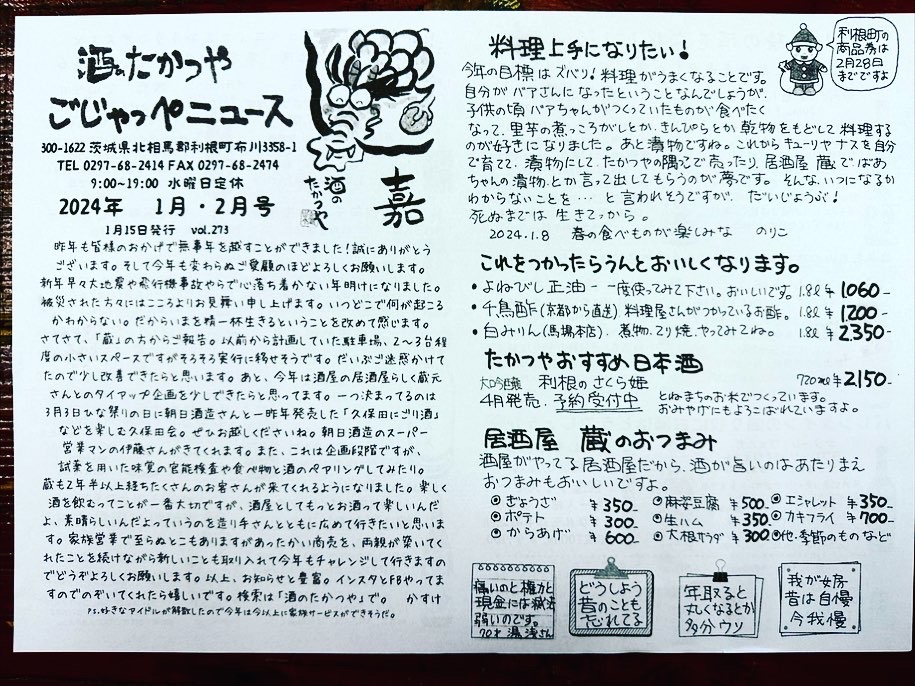 酒のたかつや
ごじゃっぺニュース
300-1622 茨城県北相馬郡利根町布川3358-1
TEL 0297-68-2414 FAX 0297-68-2474
9:00~19:00 水曜日定休
2024年 1月・2月号
1月15日発行 vol.273
嘉
酒の
たかつや
昨年も皆様のおかげで無事年を越すことができました!誠にありがとう
ございます。そして今年も変わらぬご愛顧のほどよろしくお願いします。
新年早々大地震や飛行機事故やらで心落ち着かない年明けになりました。
被災された方々にはこころよりお見舞い申し上げます。いつどこで何が起こる
かわからない。だからいまを精一杯生きるということを改めて感じます。
さてさて、「蔵」の方からご報告。以前から計画していた駐車場、2~3台程
度の小さいスペースですがそろそろ実行に移せそうです。だいぶご迷惑かけて
たので少し改善できたらと思います。あと、今年は酒屋の居酒屋らしく蔵元
さんとのタイアップ企画を少しできたらと思ってます。一つ決まってるのは
3月3日ひな祭りの日に朝日酒造さんと一昨年発売した「久保田にごり酒」
などを楽しむ久保田会。ぜひお越しくださいね。朝日酒造のスーパー
営業マンの伊藤さんがきてくれます。また、これは企画段階ですが、
試薬を用いた味覚の官能検査や食べ物と酒のペアリングしてみたり。
蔵も2年半以上経ちたくさんのお客さんが来てくれるようになりました。楽しく
酒を飲むってことが一番大切ですが、酒屋としてもっとお酒って楽しいんだ
よ、素晴らしいんだよっていうのを造り手さんとともに広めて行きたいと思いま
す。家族営業で至らぬとこもありますがあったかい商売を、両親が築いてく
れたことを続けながら新しいことも取り入れて今年もチャレンジして行きます
のでどうぞよろしくお願いします。以上、お知らせと豊富。インスタとFBやってま
すのでのぞいてくれたら嬉しいです。検索は「酒のたかつや」で。 かすけ
PS.好きなアイドルが解散したので今年は今以上に家族サービスができそうだ。
料理上手になりたい!
利根町の
商品券は
2月28日
までですよ
今年の目標はズバリ!料理がうまくなることです。
自分がバアさんになったということなんでしょうが、
子供の頃バアちゃんがつくっていたものが食べたく
なって、里芋の煮っころがしとか、きんぴらとか乾物をもどして料理する
のが好きになりました。あと漬物ですね。これからキューリやナスを自分
で育て、漬物にして、たかつやの隅っこで売ったり、居酒屋 蔵でばあ
ちゃんの漬物、とか言って出してもらうのが夢です。そんな、いつになるか
わからないことを…と言われそうですが、だいじょうぶ!
死ぬまでは生きてっから。
2024.1.8 春の食べものが楽しみな のりこ
これをつかったらうんとおいしくなります。
・よねびし正油 — 一度使ってみて下さい。おいしいです。 1.8ℓ ¥1060-
・千鳥酢(京都から直送) 料理屋さんがつかっているお酢。 1.8ℓ ¥1200-
・白みりん(馬場本店). 煮物、てり焼、やってみてね。 1.8ℓ ¥2.350-
たかつやおすすめ日本酒
大吟醸 利根のさくら姫 720mℓ ¥2150-
4月発売. 予約受付中 とねまちのお米でつくっています。
おみやげにもよろこばれていますよ。
居酒屋 蔵のおつまみ
酒屋がやってる居酒屋だから、酒が旨いのはあたりまえ
おつまみもおいしいですよ。
◎ぎょうざ ¥350- ◎麻婆豆腐 ¥500- ◎エシャレット ¥350-
◎ポテト ¥300- ◎生ハム ¥350- ◎カキフライ ¥700-
◎からあげ ¥600- ◎大根サラダ ¥300 ◎他・季節のものなど
痛いのと権力と
現金には滅法
弱いのです。
70才 湯浅さん
どうしよう
昔のことも
忘れてる
年取ると
丸くなるとか
多分ウソ
我が女房
昔は自慢
今我慢